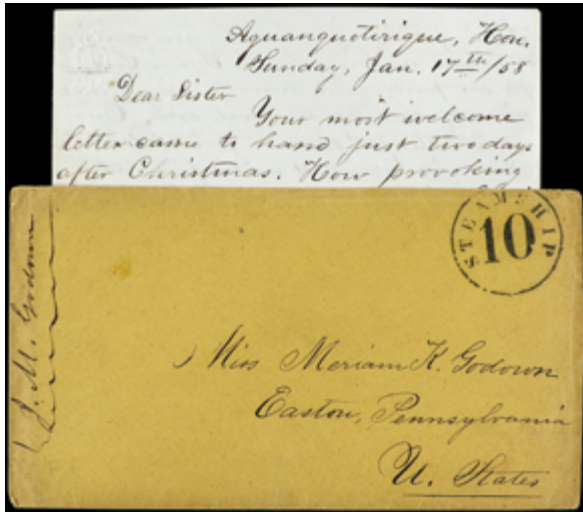 Aguanquotirique, Hon.
Sunday, Jan. 17th/58
Dear Sister
Your most welcome
letter came to hand just two days
after Christmas. How provoking
STEAMSHIP
10
J. M. Godown
Miss Meriam K. Godown
Easton, Pennsylvania
U. States